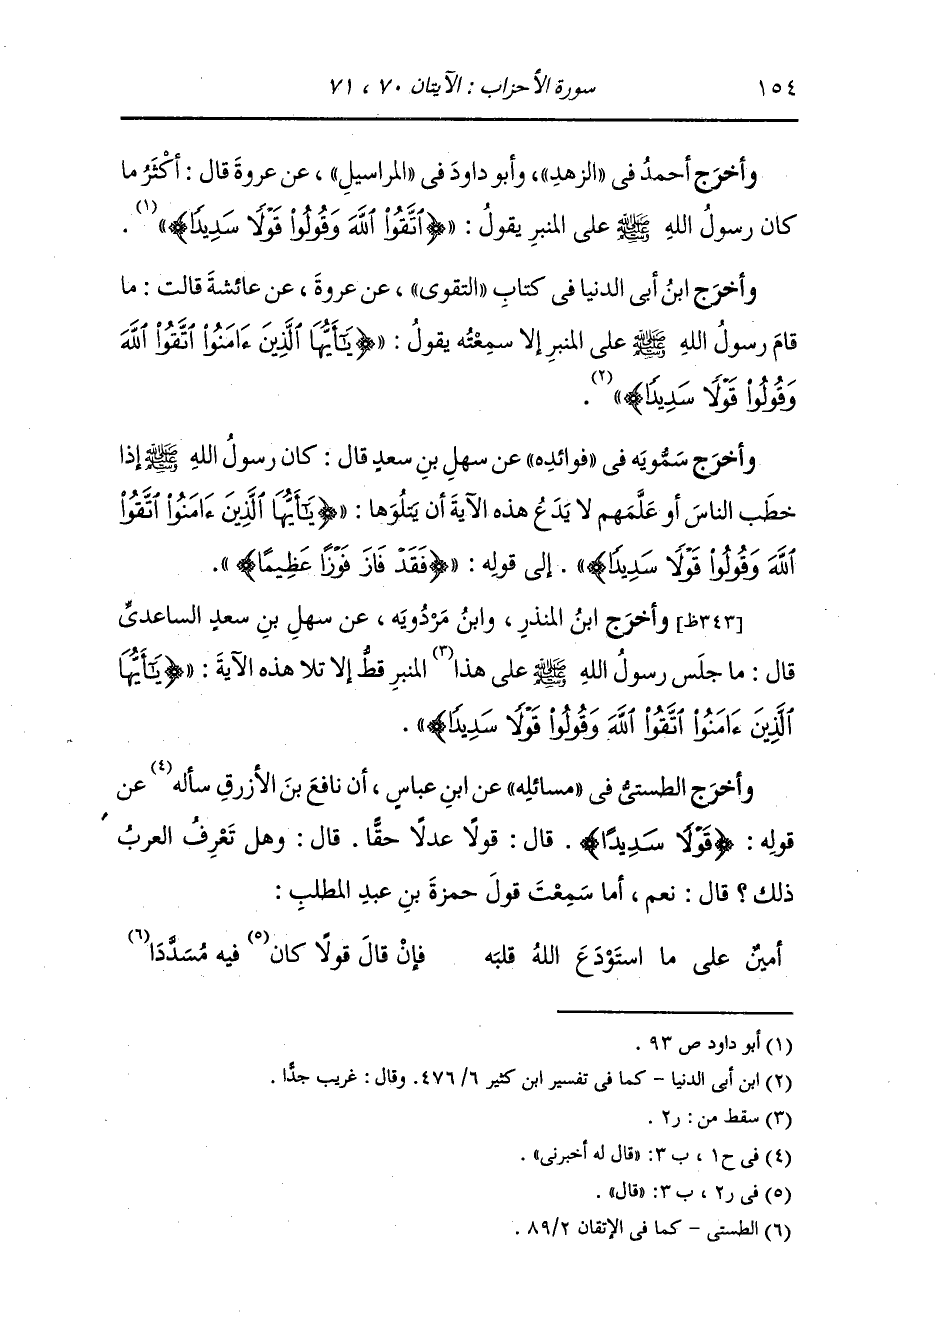 ١٥٤ سورة الأحزاب : الآيتان ٧٠ ، ٧١
وأخرَج أحمدُ فى «الزهدِ»، وأبو داودَ فى «المراسيلِ» ، عن عروةَ قال : أكْثَرُ ما
كان رسولُ اللهِ ﷺ على المنبرِ يقولُ : «﴿ٱتَّقُوا۟ ٱللَّهَ وَقُولُوا۟ قَوْلًا سَدِيدًا﴾»(١) .
وأخرَج ابنُ أبى الدنيا فى كتابِ «التقوى» ، عن عروةَ ، عن عائشةَ قالت : ما
قامَ رسولُ اللهِ ﷺ على المنبرِ إلا سمِعْتُه يقولُ : «﴿يَٰٓأَيُّهَا ٱلَّذِينَ ءَامَنُوا۟ ٱتَّقُوا۟ ٱللَّهَ
وَقُولُوا۟ قَوْلًا سَدِيدًا﴾»(٢) .
وأخرَج سَمُّويَه فى «فوائدِه» عن سهلِ بنِ سعدٍ قال : كان رسولُ اللهِ ﷺ إذا
خطَب الناسَ أو علَّمَهم لا يَدَعُ هذه الآيةَ أن يَتلُوَها : «﴿يَٰٓأَيُّهَا ٱلَّذِينَ ءَامَنُوا۟ ٱتَّقُوا۟
ٱللَّهَ وَقُولُوا۟ قَوْلًا سَدِيدًا﴾» . إلى قولِه : «﴿فَقَدْ فَازَ فَوْزًا عَظِيمًا﴾ ».
[٣٤٣ظ] وأخرَج ابنُ المنذرِ ، وابنُ مَرْدُويَه ، عن سهلِ بنِ سعدٍ الساعدىِّ
قال : ما جلَس رسولُ اللهِ ﷺ على هذا(٣) المنبرِ قطُّ إلا تلا هذه الآيةَ : «﴿يَٰٓأَيُّهَا
ٱلَّذِينَ ءَامَنُوا۟ ٱتَّقُوا۟ ٱللَّهَ وَقُولُوا۟ قَوْلًا سَدِيدًا﴾» .
وأخرَج الطستىُّ فى «مسائلِه» عن ابنِ عباسٍ ، أن نافعَ بنَ الأزرقِ سأله(٤) عن
قولِه : ﴿قَوْلًا سَدِيدًا﴾ . قال : قولًا عدلًا حقًّا . قال : وهل تَعْرِفُ العربُ
ذلك ؟ قال : نعم ، أما سَمِعْتَ قولَ حمزةَ بنِ عبدِ المطلبِ :
أمينٌ على ما استَوْدَعَ اللهُ قلبَه فإنْ قالَ قولًا كان(٥) فيه مُسَدَّدَا(٦)
(١) أبو داود ص ٩٣ .
(٢) ابن أبى الدنيا – كما فى تفسير ابن كثير ٦/ ٤٧٦. وقال : غريب جدًّا .
(٣) سقط من : ر٢ .
(٤) فى ح١ ، ب ٣: «قال له أخبرنى» .
(٥) فى ر٢ ، ب ٣: «قال» .
(٦) الطستى – كما فى الإتقان ٨٩/٢ .